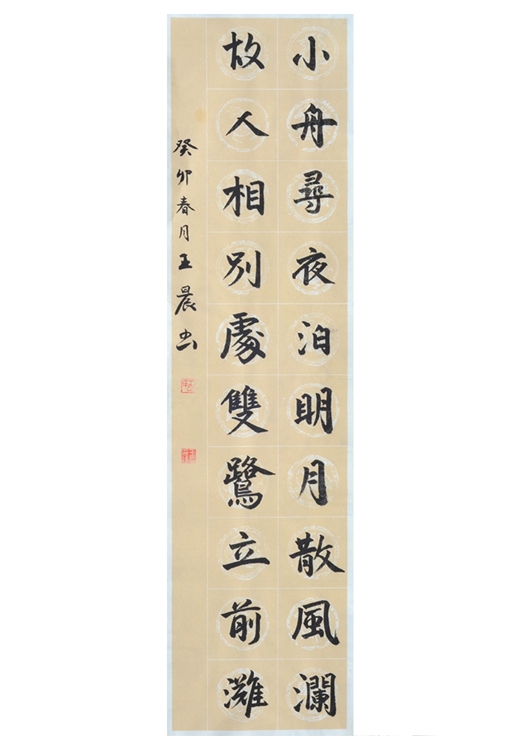 小舟尋夜泊明月散風瀾
故人相別處雙鷺立前灘
癸卯春月王晨书